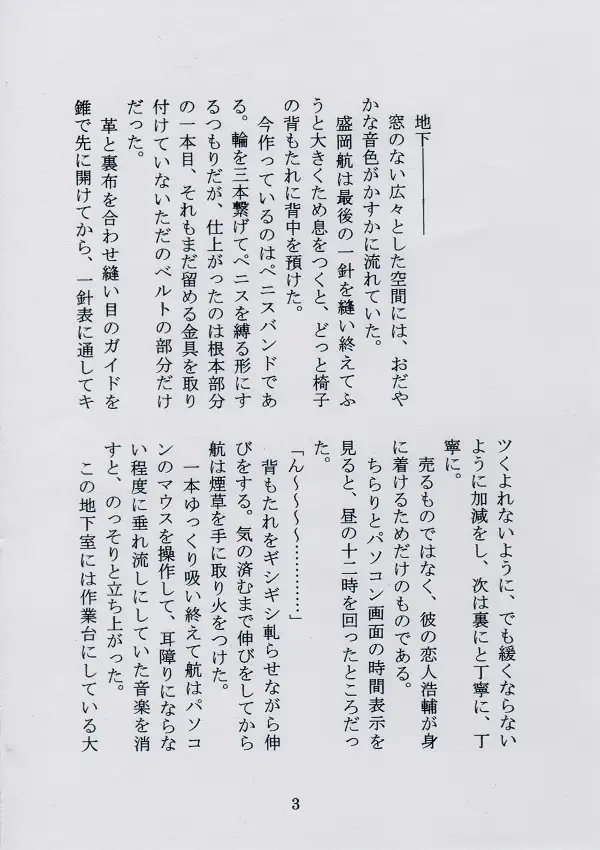 地下――――
　窓のない広々とした空間には、おだや
かな音色がかすかに流れていた。
　盛岡航は最後の一針を縫い終えてふ
うと大きくため息をつくと、どっと椅子
の背もたれに背中を預けた。
　今作っているのはペニスバンドであ
る。輪を三本繋げてペニスを縛る形にす
るつもりだが、仕上がったのは根本部分
の一本目、それもまだ留める金具を取り
付けていないただのベルトの部分だけ
だった。
　革と裏布を合わせ縫い目のガイドを
錐で先に開けてから、一針表に通してキ
ツくよれないように、でも緩くならない
ように加減をし、次は裏にと丁寧に、丁
寧に。
　売るものではなく、彼の恋人浩輔が身
に着けるためだけのものである。
　ちらりとパソコン画面の時間表示を
見ると、昼の十二時を回ったところだっ
た。
「ん～～～～…………」
　背もたれをギシギシ軋らせながら伸
びをする。気の済むまで伸びをしてから
航は煙草を手に取り火をつけた。
　一本ゆっくり吸い終えて航はパソコ
ンのマウスを操作して、耳障りにならな
い程度に垂れ流しにしていた音楽を消
すと、のっそりと立ち上がった。
　この地下室には作業台にしている大
3